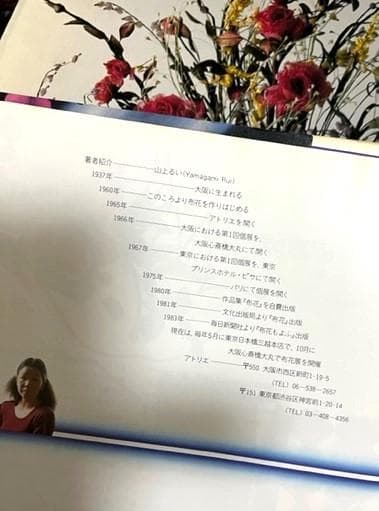 著者紹介――――山上るい(Yamagami Rui)
1937年――――――――大阪に生まれる
1960年――――このころより布花を作りはじめる
1965年――――――――アトリエを開く
1966年――――――大阪における第1回個展を、
大阪心斎橋大丸にて開く
1967年――――――東京における第1回個展を、東京
プリンスホテル・ピサにて開く
1975年――――――パリにて個展を開く
1980年――――――作品集『布花』を自費出版
1981年――――――文化出版局より『布花』出版
1983年――――毎日新聞社より『布花もよふ』出版
現在は、毎年5月に東京日本橋三越本店で、10月に
大阪心斎橋大丸で布花展を開催
アトリエ――――〒550 大阪市西区新町1-19-5
(TEL) 06-538-2657
〒151 東京都渋谷区神宮前1-20-14
(TEL) 03-408-4356